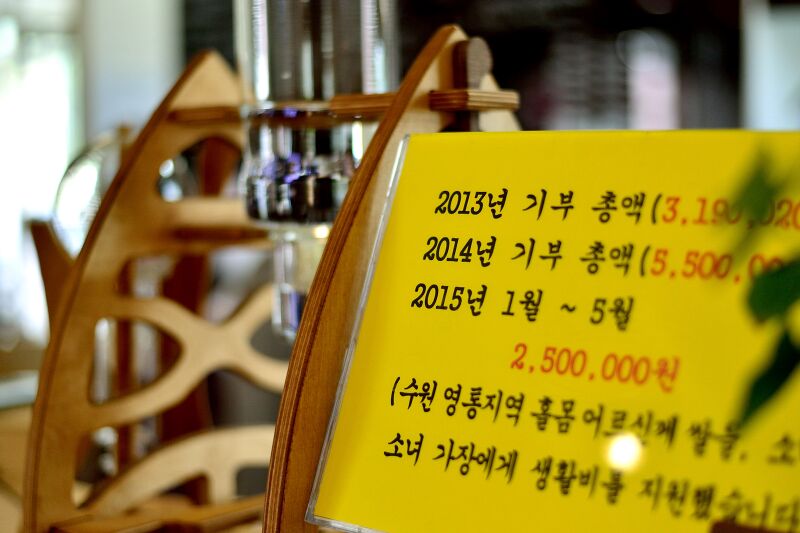 2013년 기부 총액(3,190,020
2014년 기부 총액(5,500,00
2015년 1월 ~ 5월
2,500,000원
(수원 영통지역 홀몸어르신께 쌀을, 소
소녀 가장에게 생활비를 지원했습니다